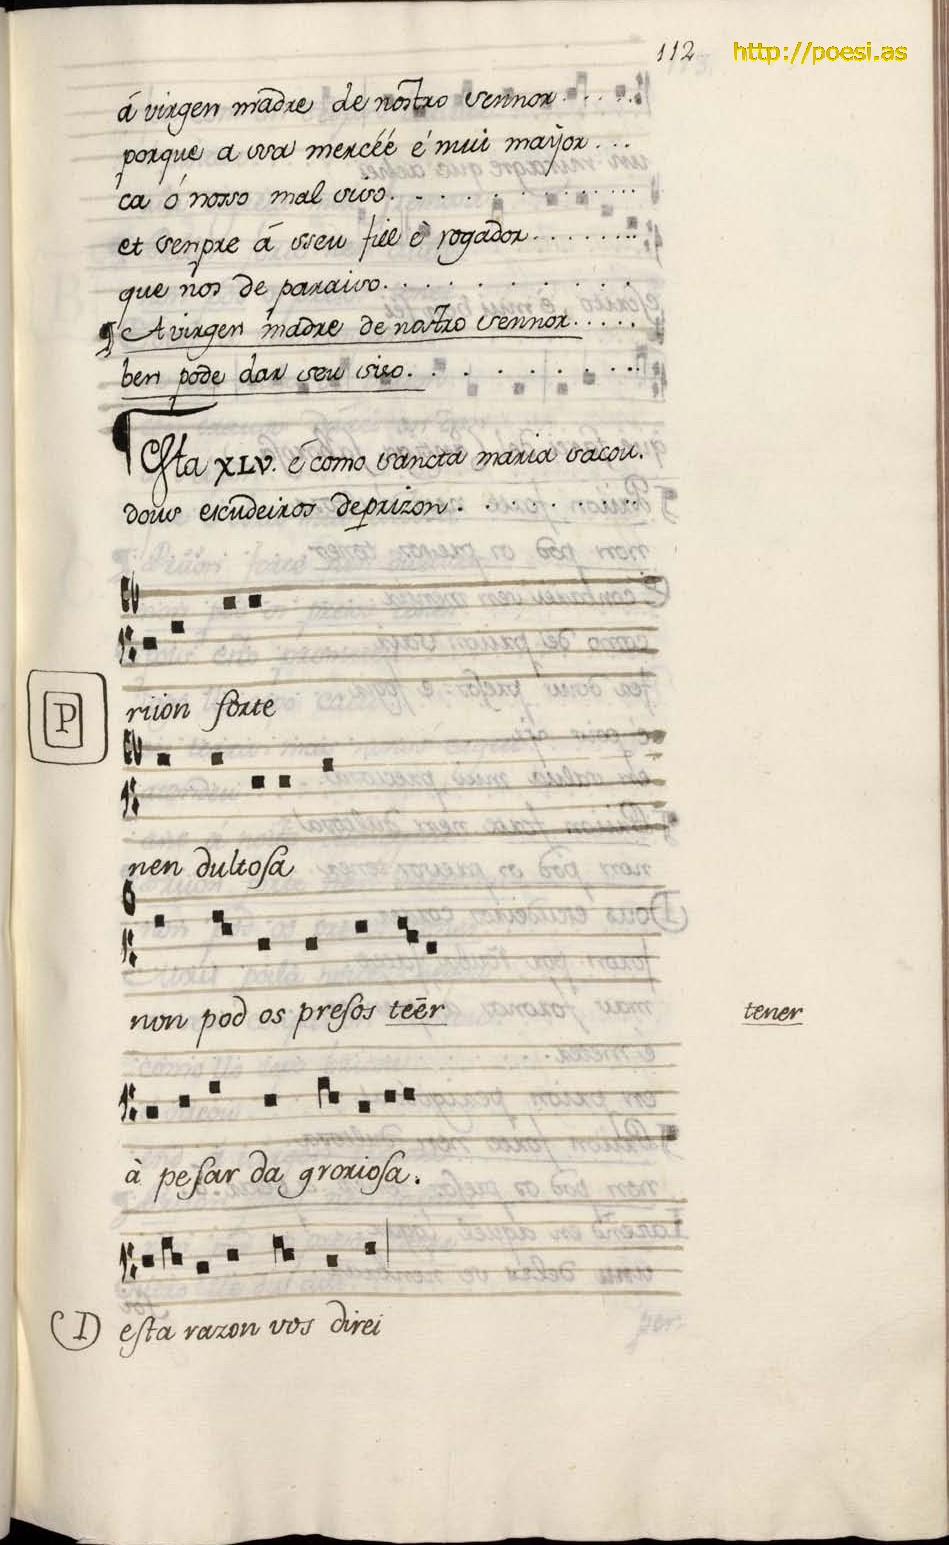 112 http://poesi.as
á virgen madre de nostro sennor . . . . . .
porque a ssa mercéé é mui maÿor . . .
ca ó nosso mal siso . . . . . . . . . .
et senpre á sseu fiie è rogador . . . . . . . .
que nos de paraiso . . . . . . . . . .
¶ A virgen madre de nostro sennor . . . . .
ben pode dar seu siso . . . . . . . . .
Esta XLV. é como sancta maria sacou.
dous escudeiros de prizon . . . . . . . .
P riion forte
nen dultosa
non pod os presos teēr tener
à pesar da groriosa.
D esta razon vos direi